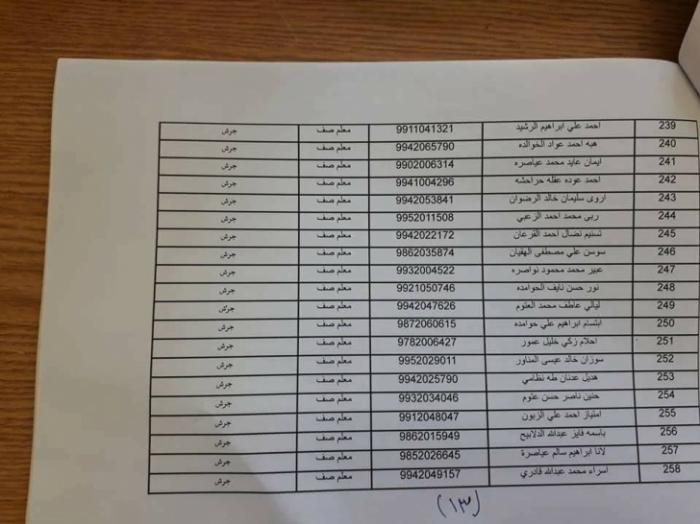 239 احمد علي ابراهيم الرشيد 9911041321 معلم صف جرش
240 هبه احمد عواد الخوالده 9942065790 معلم صف جرش
241 ايمان عايد محمد عياصره 9902006314 معلم صف جرش
242 احمد عوده عقله حراحشه 9941004296 معلم صف جرش
243 اروى سليمان خالد الرضوان 9942053841 معلم صف جرش
244 ربى محمد احمد الزعبي 9952011508 معلم صف جرش
245 تسنيم نضال احمد القرعان 9942022172 معلم صف جرش
246 سوسن علي مصطفى الهقيان 9862035874 معلم صف جرش
247 عبير محمد محمود نواصره 9932004522 معلم صف جرش
248 نور حسن نايف الحوامده 9921050746 معلم صف جرش
249 ليالي عاطف محمد العتوم 9942047626 معلم صف جرش
250 ابتسام ابراهيم علي حوامده 9872060615 معلم صف جرش
251 احلام زكي خليل عمور 9782006427 معلم صف جرش
252 سوزان خالد عيسى المناور 9952029011 معلم صف جرش
253 هديل عدنان طه نظامي 9942025790 معلم صف جرش
254 حنين ناصر حسن علوم 9932034046 معلم صف جرش
255 امتياز احمد علي الزبون 9912048047 معلم صف جرش
256 باسمه فايز عبدالله الدلابيح 9862015949 معلم صف جرش
257 لانا ابراهيم سالم عياصرة 9852026645 معلم صف جرش
258 اسراء محمد عبدالله قادري 9942049157 معلم صف جرش
(١٣)